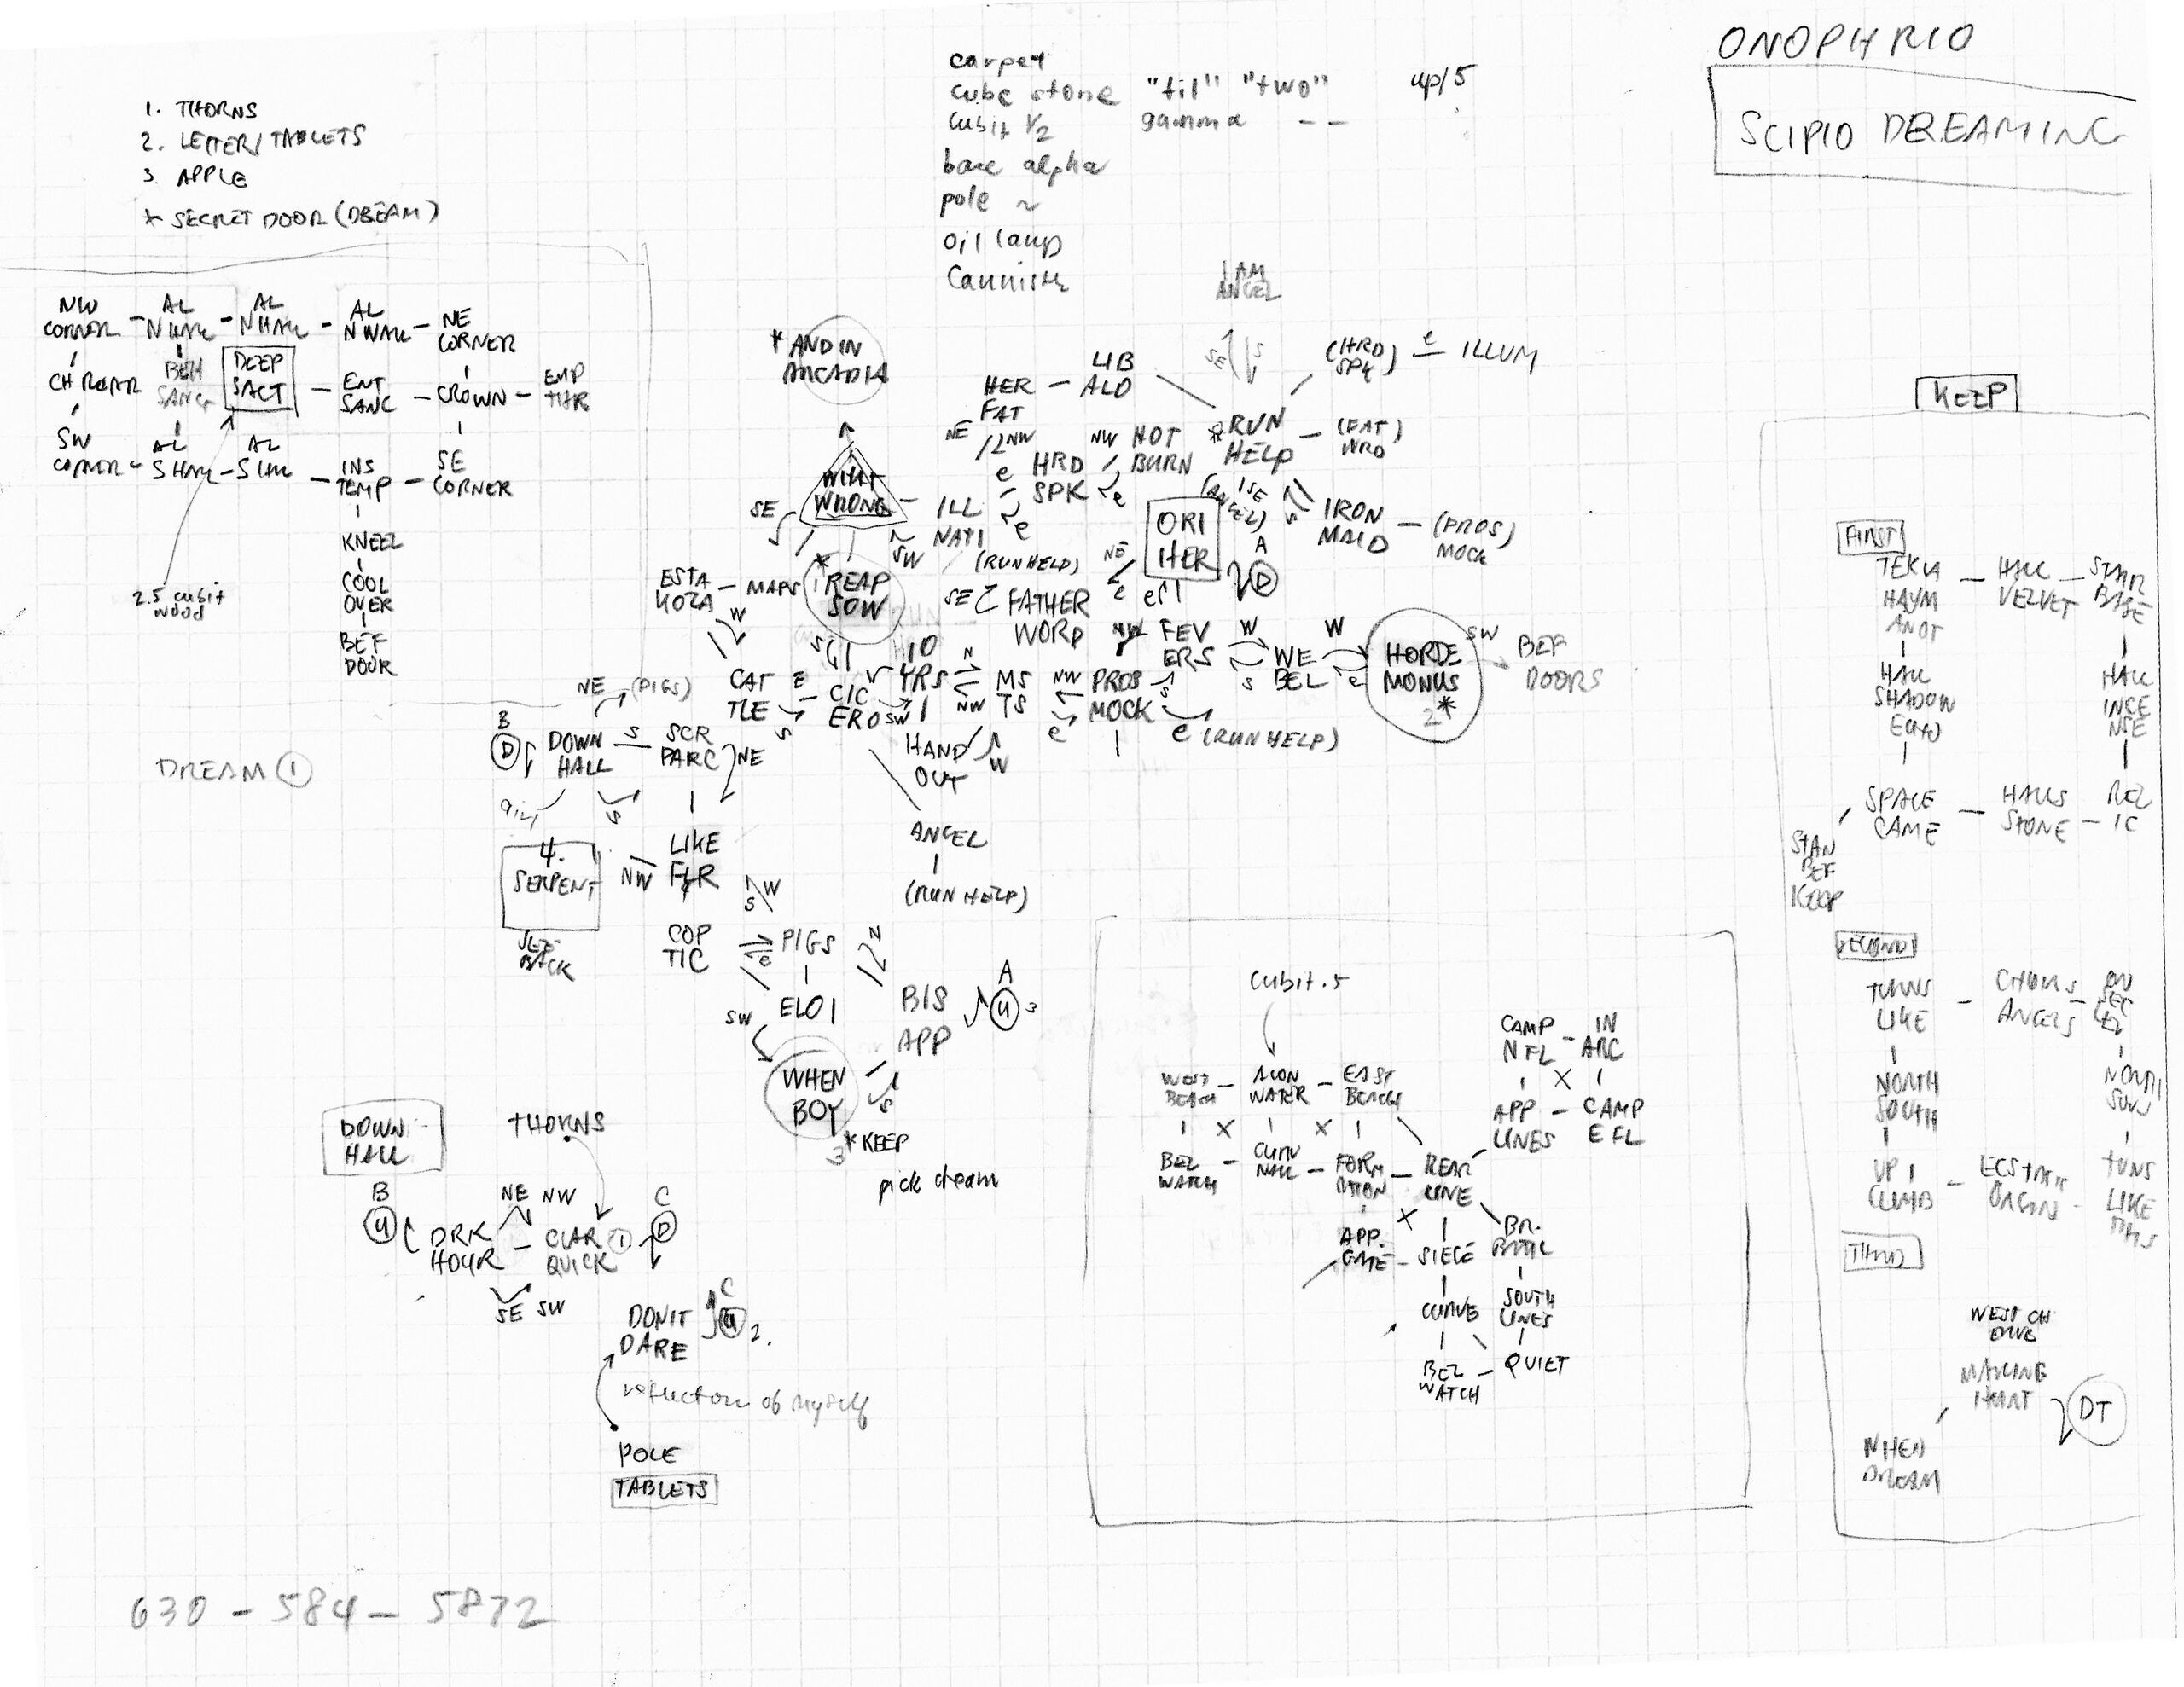 ONOPHRIO
SCIPIO DREAMING
carpet
cube stone "til" "two" up/5
cubit 1/2 gamma - -
base alpha
pole ~
oil lamp
1. THORNS
2. LETTER/TABLETS
3. APPLE
* SECRET DOOR (DREAM)
NW CORNER - AL N HALL - AL N HALL - AL N WALL - NE CORNER
DEEP SACT - ENT SANC - CROWN - EMP THR
SW CORNER - AL S HALL - AL S HALL - INS TEMP - SE CORNER
KNEEL
COOL OVER
BEF DOOR
2.5 cubit wood
DREAM 1
I AM ANGEL
* AND IN ARCADIA
HER FAT - LIB ALD
(HRD SPK) e ILLUM
NE / NW
HRD SPK
NW
NOT BURN
* RUN HELP - (FAT) WRD
WHAT WRONG
SE
SW
ILL NATI
(RUN HELP)
ORI HER
(ANGEL)
IRON MAID - (PROS) MOCK
A
D
ESTA HOZA - MAPS
* 1 REAP SOW
SE
FATHER WORD
NE
FEV ERS
W
WE BEL
W
HORDE MONUS
2*
SW
BEF DOORS
CAT TLE
E
CIC ERO
SW
10 YRS
N
NW
MS TS
NW
PROS MOCK
e (RUN HELP)
HAND OUT
W
ANGEL
(RUN HELP)
NE (PIGS)
B
D
DOWN HALL
S
SCR PARC
NE
4. SERPENT
NW
LIKE FLR
COP TIC
PIGS
ELOI
SW
N
BIS APP
A
U 3
WHEN BOY
3
* KEEP
pick dream
DOWN HALL
THORNS
B
U
DRK HOUR
NE NW
SE SW
CLAR QUICK 1
C
D
DON'T DARE
C
U 2.
reflection of myself
POLE
TABLETS
cubit .5
WEST BEACH - ALON WATER - EAST BEACH
BEL WATCH - FORM ATION - REAR LINE
CAMP NFL - IN ARC
APP LINES - CAMP EFL
APP. GATE - SIEGE
CURVE
SOUTH LINES
BEL WATCH - QUIET
KEEP
FIRST
TEKLA HAYM ANOT - HALL VELVET - STAIR BASE
HALL SHADOW ECHO
HALL INCE NSE
SPACE CAME - HALLS STONE - REL IC
STAN BEF KEEP
SECOND
TURNS LIKE
ANGELS
NORTH SOUTH
UP I CLIMB - ECSTATIC ORGAN - TURNS LIKE THIS
THIRD
DT
WHEN DREAM
630 - 584 - 5872